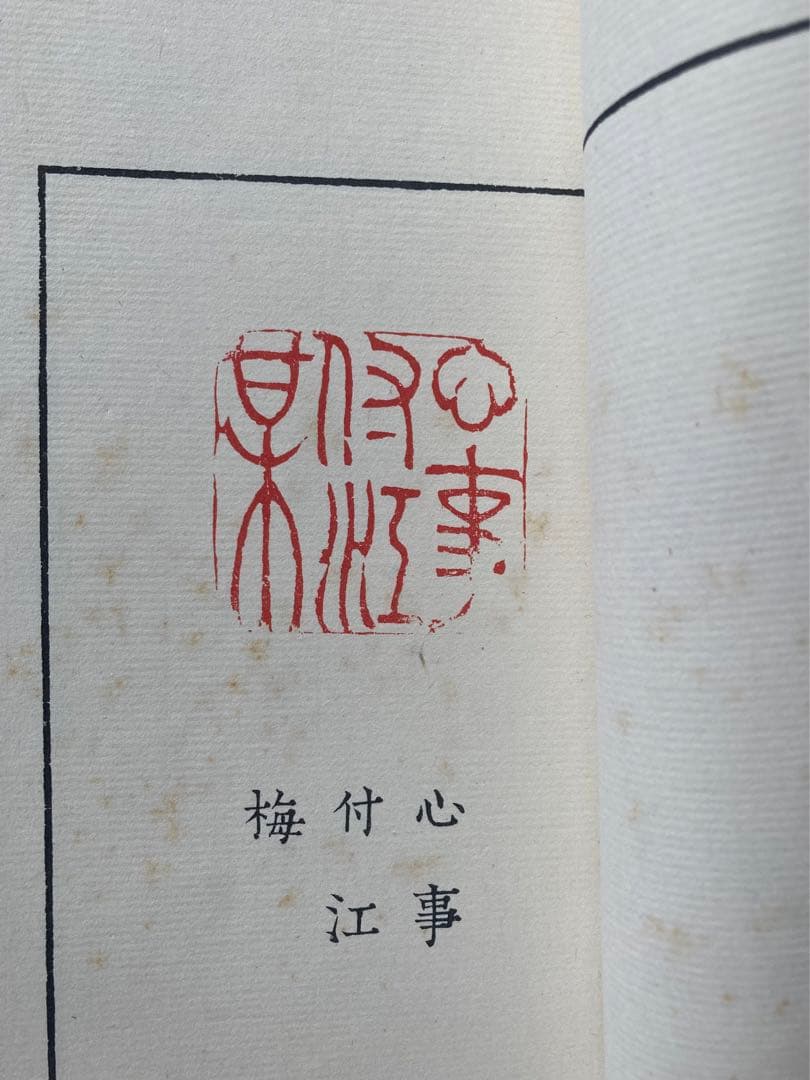 心事
付江
某
心事
付江
梅